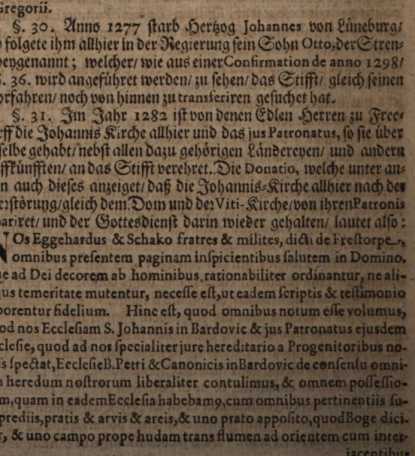 Gregorii.
§. 30. Anno 1277 starb Hertzog Johannes von Lüneburg/
folgete ihm allhier in der Regierung sein Sohn Otto, der Stren-
beygenannt; welcher/ wie aus einer Confirmation de anno 1298/
§. 36. wird angeführet werden/ zu sehen/ das Stifft/ gleich seinen
orfahren/ noch von hinnen zu transferiren gesuchet hat.
§. 31. Im Jahr 1282 ist von denen Edlen Herren zu Free-
rff die Johannis Kirche allhier und das jus Patronatus, so sie über
selbe gehabt/ nebst allen dazu gehörigen Ländereyen/ und andern
ffkünfften/ an das Stifft verehret. Die Donatio, welche unter an-
n auch dieses anzeiget/ daß die Johannis-Kirche allhier nach der
erstörung/ gleich dem Dom und der Viti-Kirche/ von ihren Patronis
pariret/ und der Gottesdienst darin wieder gehalten/ lautet also:
NOs Eggehardus & Schako fratres & milites, dicti de Frestorpe,
omnibus presentem paginam inspicientibus salutem in Domino.
ue ad Dei decorem ab hominibus rationabiliter ordinantur, ne ali-
us temeritate mutentur, necesse est, ut eadem scriptis & testimonio
borentur fidelium. Hinc est, quod omnibus notum esse volumus,
od nos Ecclesiam S. Johannis in Bardovic & jus Patronatus ejusdem
clesie, quod ad nos specialiter jure hereditario a Progenitoribus no-
s spectat, Ecclesie B. Petri & Canonicis in Bardovic de consensu omni-
heredum nostrorum liberaliter contulimus, & omnem possessio-
m, quam in eadem Ecclesia habebamꝰ, cum omnibus pertinentiis su-
prediis, pratis & arvis & areis, & uno prato apposito, quod Boge dici-
r, & uno campo prope hudam trans flumen ad orientem cum inter-
jacentibus